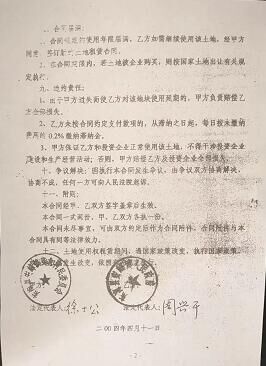 1、合同届满:
合同规定的使用年限届满，乙方如需继续使用该土地，经甲方
同意，签订新的土地租赁合同。
2、在合同期限内，若土地被企业购买，则按国家土地出让有关规
定执行。
九、违约责任:
1、由于甲方过失而使乙方对该地块使用延期的，甲方负责赔偿乙
方全部损失。
2、乙方未按合同的定支付款项的，从滞纳之日起，每日按未缴纳
费用的0.2%缴纳滞纳金。
3、甲方保证乙方和投资企业正常使用该土地，不得干涉投资企业
建设和生产经营活动；否则，甲方赔偿乙方及投资企业全部损失。
十、争议解决：因执行本合同发生争议，由争议双方协商解决，
协商不成，任何一方可向人民法院起诉。
十一、附则:
本合同经甲、乙双方签字盖章后生效。
本合同一式两份，甲、乙双方各执一份。
本合同未尽事宜，可由双方约定后作为合同附件，合同附件与本
合同具有同等法律效力。
十二、土地使用权租赁期间，遇国家政策改变，执行国家政策
发生改变，依照
法定代表人: 徐士公 法定代表人: 周兴平
二00四年四月十一日
2